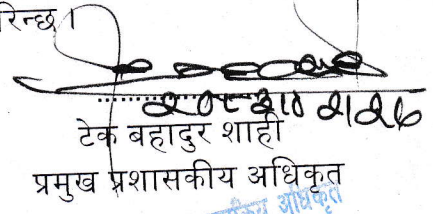 रिन्छ।
टेक बहादुर शाही
प्रमुख प्रशासकीय अधिकृत
अधिकृत